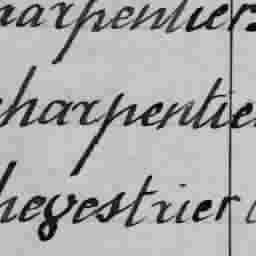 harpentiers
charpentier
hegestrier